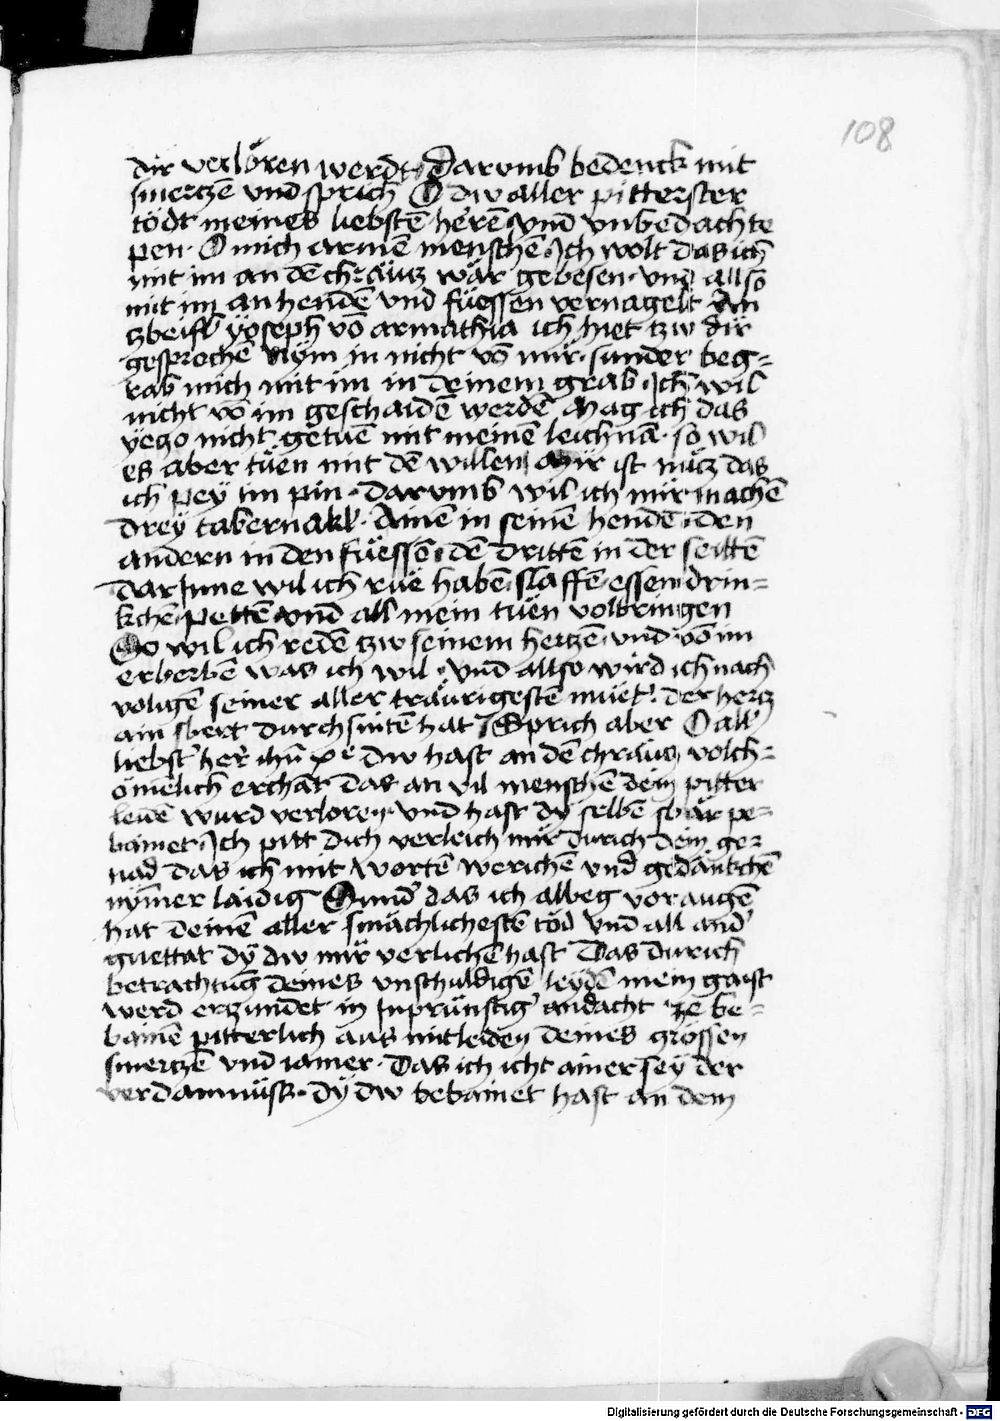 108
dir verlören werdt Darumb bedenck mit
smerczē vnd sprich O diw aller pitterster
tödt meines liebstē herē vnd vnbedachte
pen · O mich armē menschē Ich wolt das ich
mit im an dē chräucz wär gebesen · vnd allso
mit im an hendē vnd füessen vernagelt An
zbeifl yoseph vō armathia ich hiet tzw dir
gesprochē Nym in nicht vō mir · sunder beg-
rab mich mit im in deinem grab Ich wil
nicht vō im geschaidē werdē Mag ich das
yeczo nicht getuen mit meinē leichnā · so wil
es aber tüen mit dē willen Mir ist nücz das
ich pey im pin · Darumb wil ich mir machē
Drey tabernakl · Ainē in seinē hendē den
andern in den füessē dē drittē in der seittē
Dar Inne wil ich rue habē slaffē essen drin-
kchē pettē vnd all mein tuen volbringen
So wil ich redē tzw seinem herczē vnd vō im
erberbē was ich wil · vnd allso wird ich nach
volugē seiner aller träurigestē muet' der hercz
ain sbert durchsnitē hat Sprich aber O all'
liebst' her' ihū xpe diw hast an dē chräucz volch-
ömēlich erchāt das an vil menschē dein pitter
leidē wurd verloren · vnd hast dy selbē sbär pe-
bainet Ich pitt dich verleich mir durich dein ge-
nad das ich mit wortē werichē vnd gedänkchē
nymer laidig Sunnd' das ich albeg vor augē
hat deinē aller smächlichestē tod vnd all and'
guettat dy diw mir verlichē hast Das durich
betrachtūg deines vnschuldigē leydē mein gaist
werd erczundet in Inprünstig' andacht ze be-
bainē pitterlich aus mitleiden deines grossen
smerczē vnd iamer · Das ich icht ainer sey der
verdamnüss · dy diw bebainet hast an dem
Digitalisierung gefördert durch die Deutsche Forschungsgemeinschaft - DFG